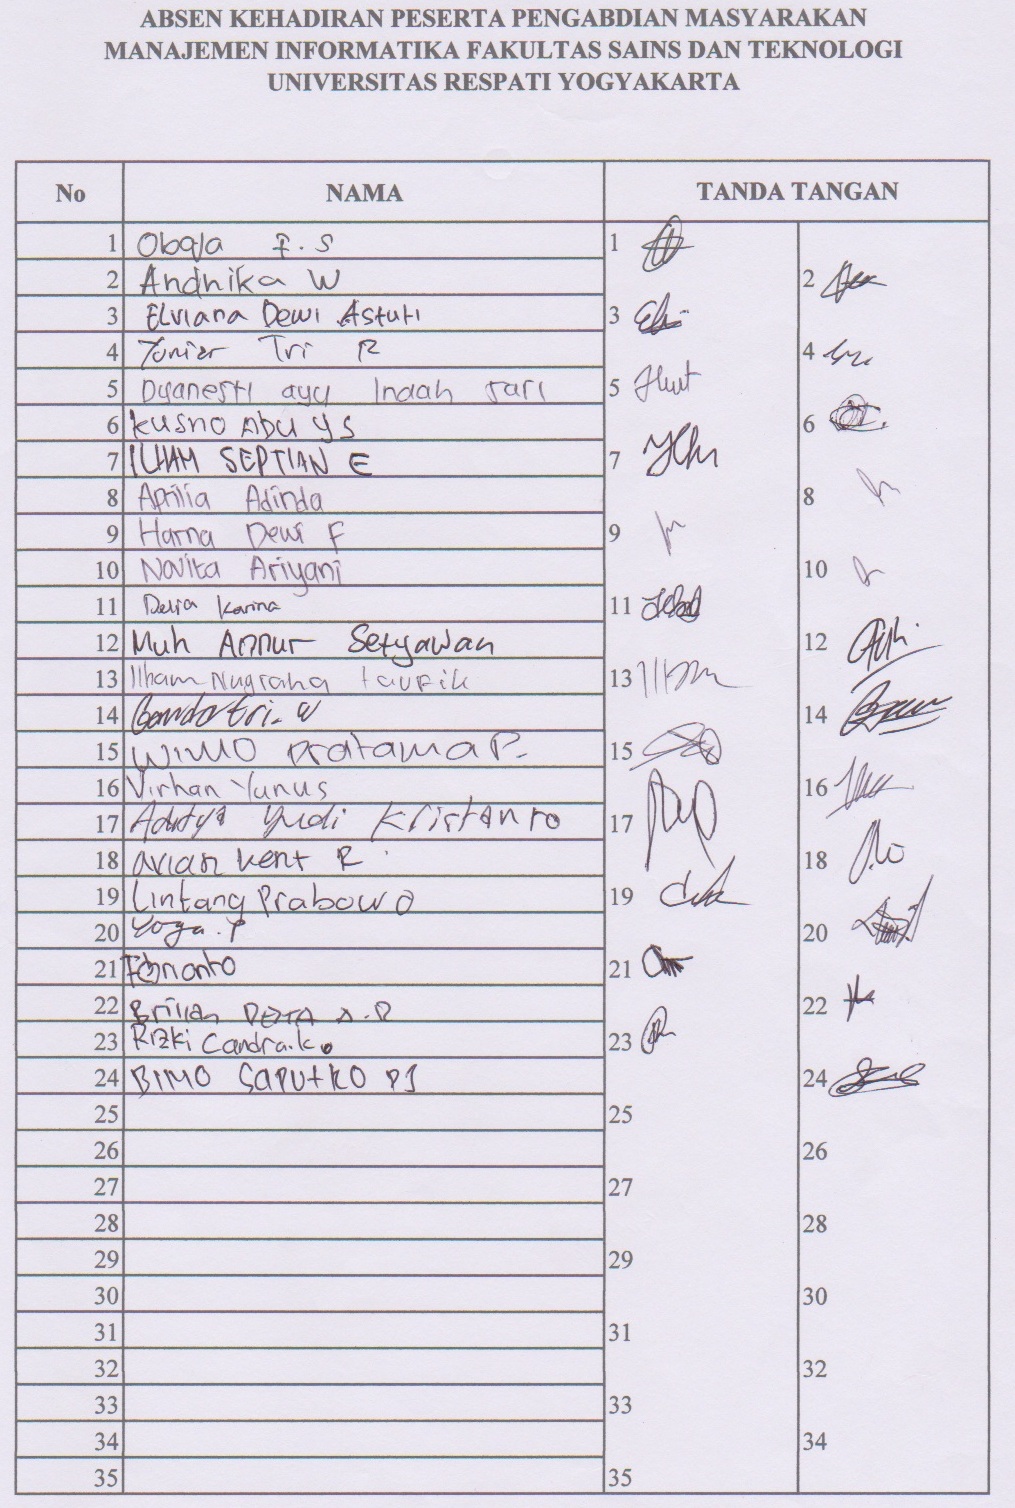 ABSEN KEHADIRAN PESERTA PENGABDIAN MASYARAKAN
MANAJEMEN INFORMATIKA FAKULTAS SAINS DAN TEKNOLOGI
UNIVERSITAS RESPATI YOGYAKARTA
No NAMA TANDA TANGAN
1 Obaja F.S 1
2 Andhika W 2
3 Elviana Dewi Astuti 3
4 Tri R 4
5 Dyanesti ayu Indah sari 5
6 Kusno Abu YS 6
7 ILHAM SEPTIAN E 7
8 Aprilia Adinda 8
9 Harna Dewi F 9
10 Novita Ariyani 10
11 Delia Karina 11
12 Muh Annur Setyawan 12
13 Ilham Nugraha taufik 13
14 tri. W 14
15 WIMO Pratama P. 15
16 Virhan Yunus 16
17 Aditya Yudi Kristanto 17
18 avian kent R 18
19 Lintang Prabowo 19
20 Yoga.P 20
21 21
22 Brillan A.P 22
23 Rizki Candra.K 23
24 BIMO SAPUTRO PJ 24
25 25
26 26
27 27
28 28
29 29
30 30
31 31
32 32
33 33
34 34
35 35